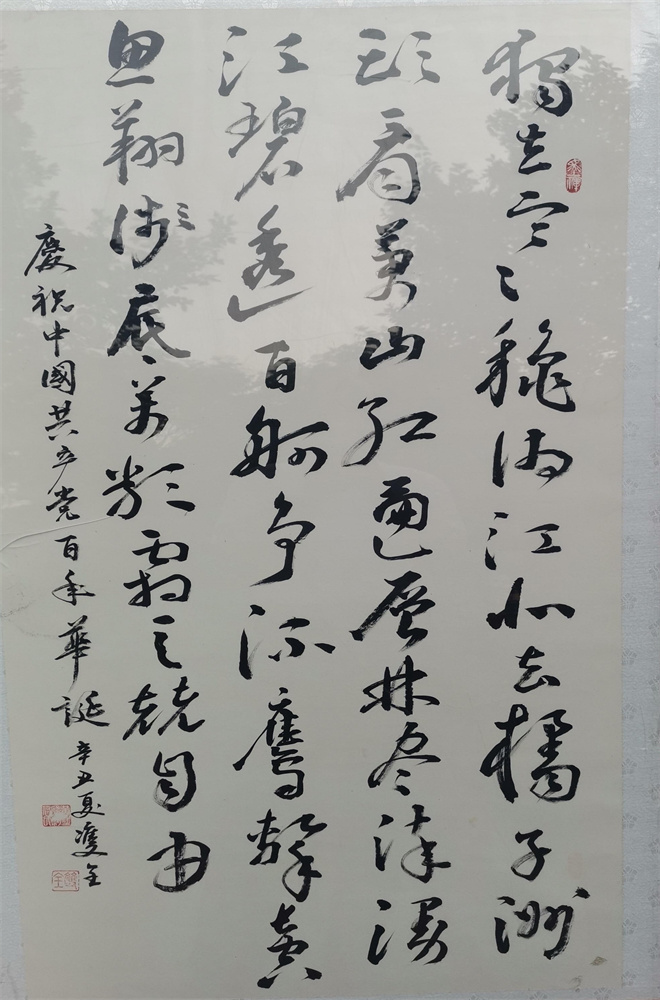 獨立寒秋湘江北去橘子洲
頭看萬山紅遍層林尽染漫
江碧透百舸争流鷹擊長
魚翔淺底萬類霜天競自由
慶祝中國共产党百年華誕辛丑夏雙全